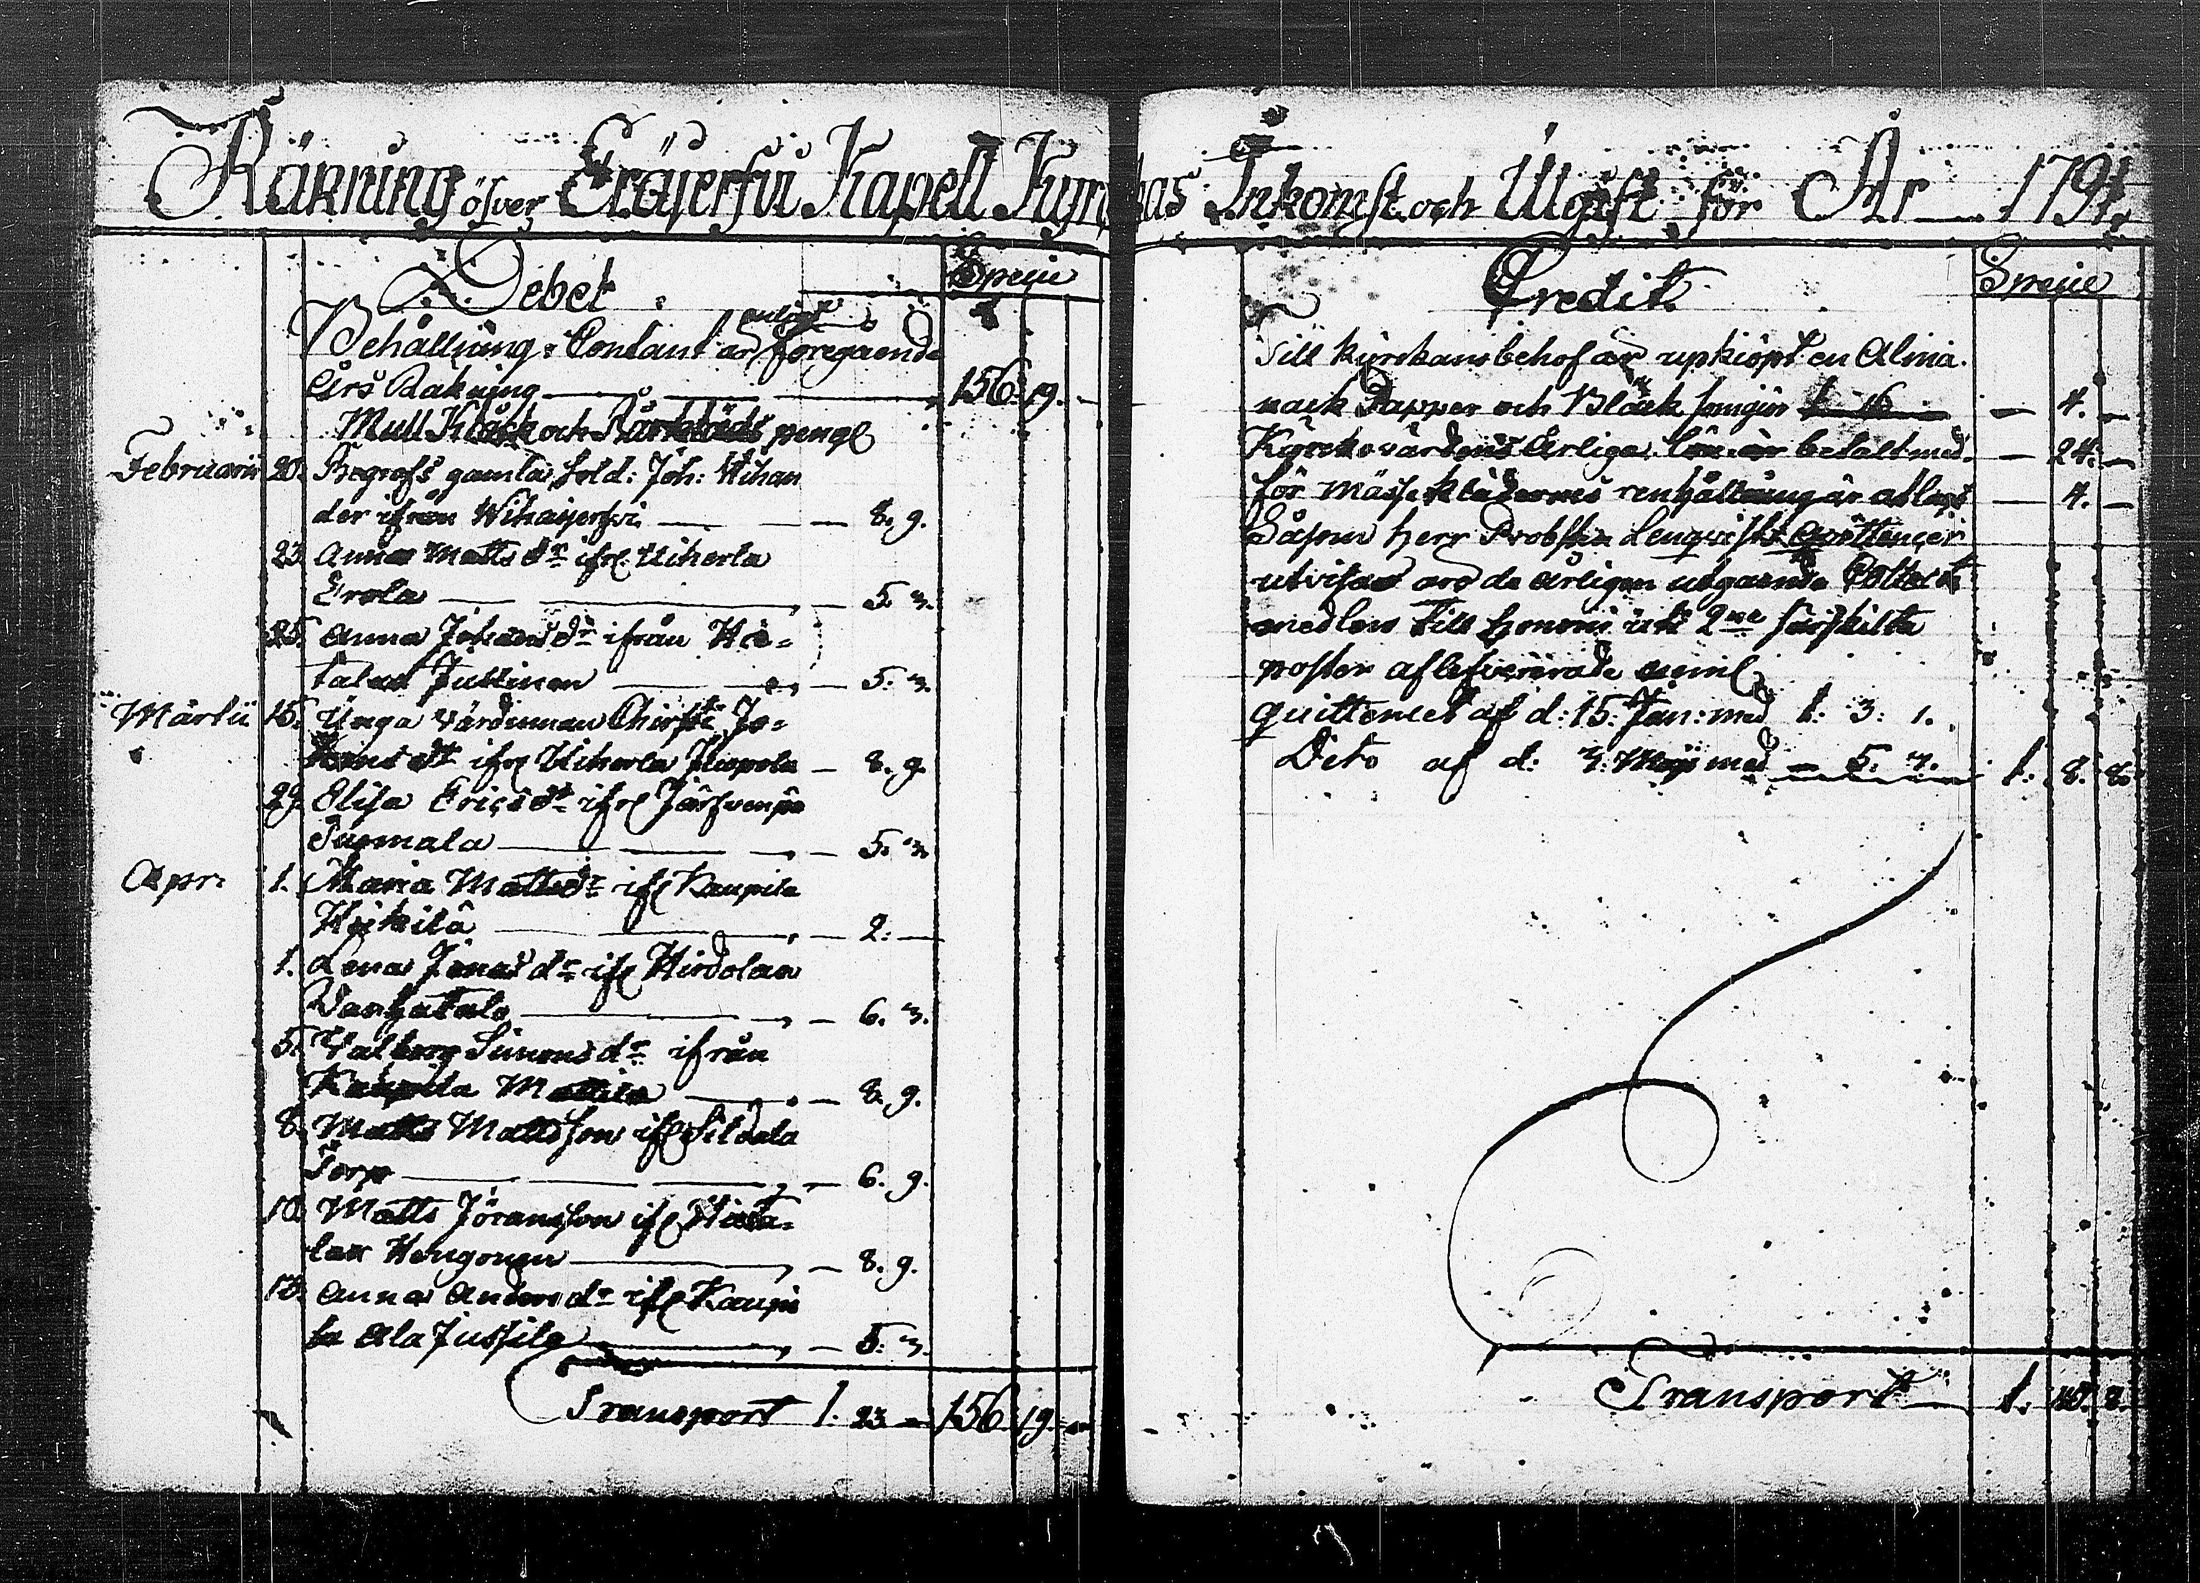 Räkning öfver Eräjerfvi Kapell Kyrckas Inkomst och Utgift för År 1791.
Debet
Specie
Behållning Contant enligt föregående
Års Räkning 156. 19. —
Mull Klåck och Bårklädes peng.
Februarii 20. Begrofs gamla Sold: Joh: Wihan
der ifrån Wihajerfvi — 8. 9.
23. Anna Matts dr ifr. Uiherla
Erola — 5. 3.
25. Anna Johans dr ifrån Hie-
talax Jullinen — 5. 3.
Martii 15. Unga Värdinnan Chirsti Jo-
hans dr ifr. Uiherla Uoopola — 8. 9.
29. Elisa Erics dr ifr. Järfvenpä
Tuomala — 5. 3.
Apr: 1. Maria Matts dr ifr. Kaupila
Heikilä — 2. —
1. Lena Jonas dr ifr. Hirvolan
Vanhatalo — 6. 3.
5. Valborg Simons dr ifrån
Kaupila Mattila — 8. 9.
8. Matts Mattsson ifr. Silvola
Torp — 6. 9.
10. Matts Jöransson ifr. Hieta-
lax Hengonen — 8. 9.
18. Anna Anders dr ifr. Kaupi
la Ala Jussila — 5. 3.
Transport 1. 23 — 156. 19. —
Credit
Specie
Till kyrckans behof är upkiöpt en Alma-
nack Papper och Bläck som giör — 4. —
Kyrckovärdens Årliga Lön är betalt med — 24. —
för Mässeklädernes renhållning är aflagt — 4. —
Såsom Herr Probsten Lenqvists Qvittencer
utvisar äro de Årligen utgående Collect
medlen till honom uti 2ne särskilta
poster aflefvererade neml.
Quittencet af d: 15: Jan: med 1: 3: 1.
Dito af d: 3. Maji med — 5. 7. 1. 8. 8.
Transport 1. 40. 8.